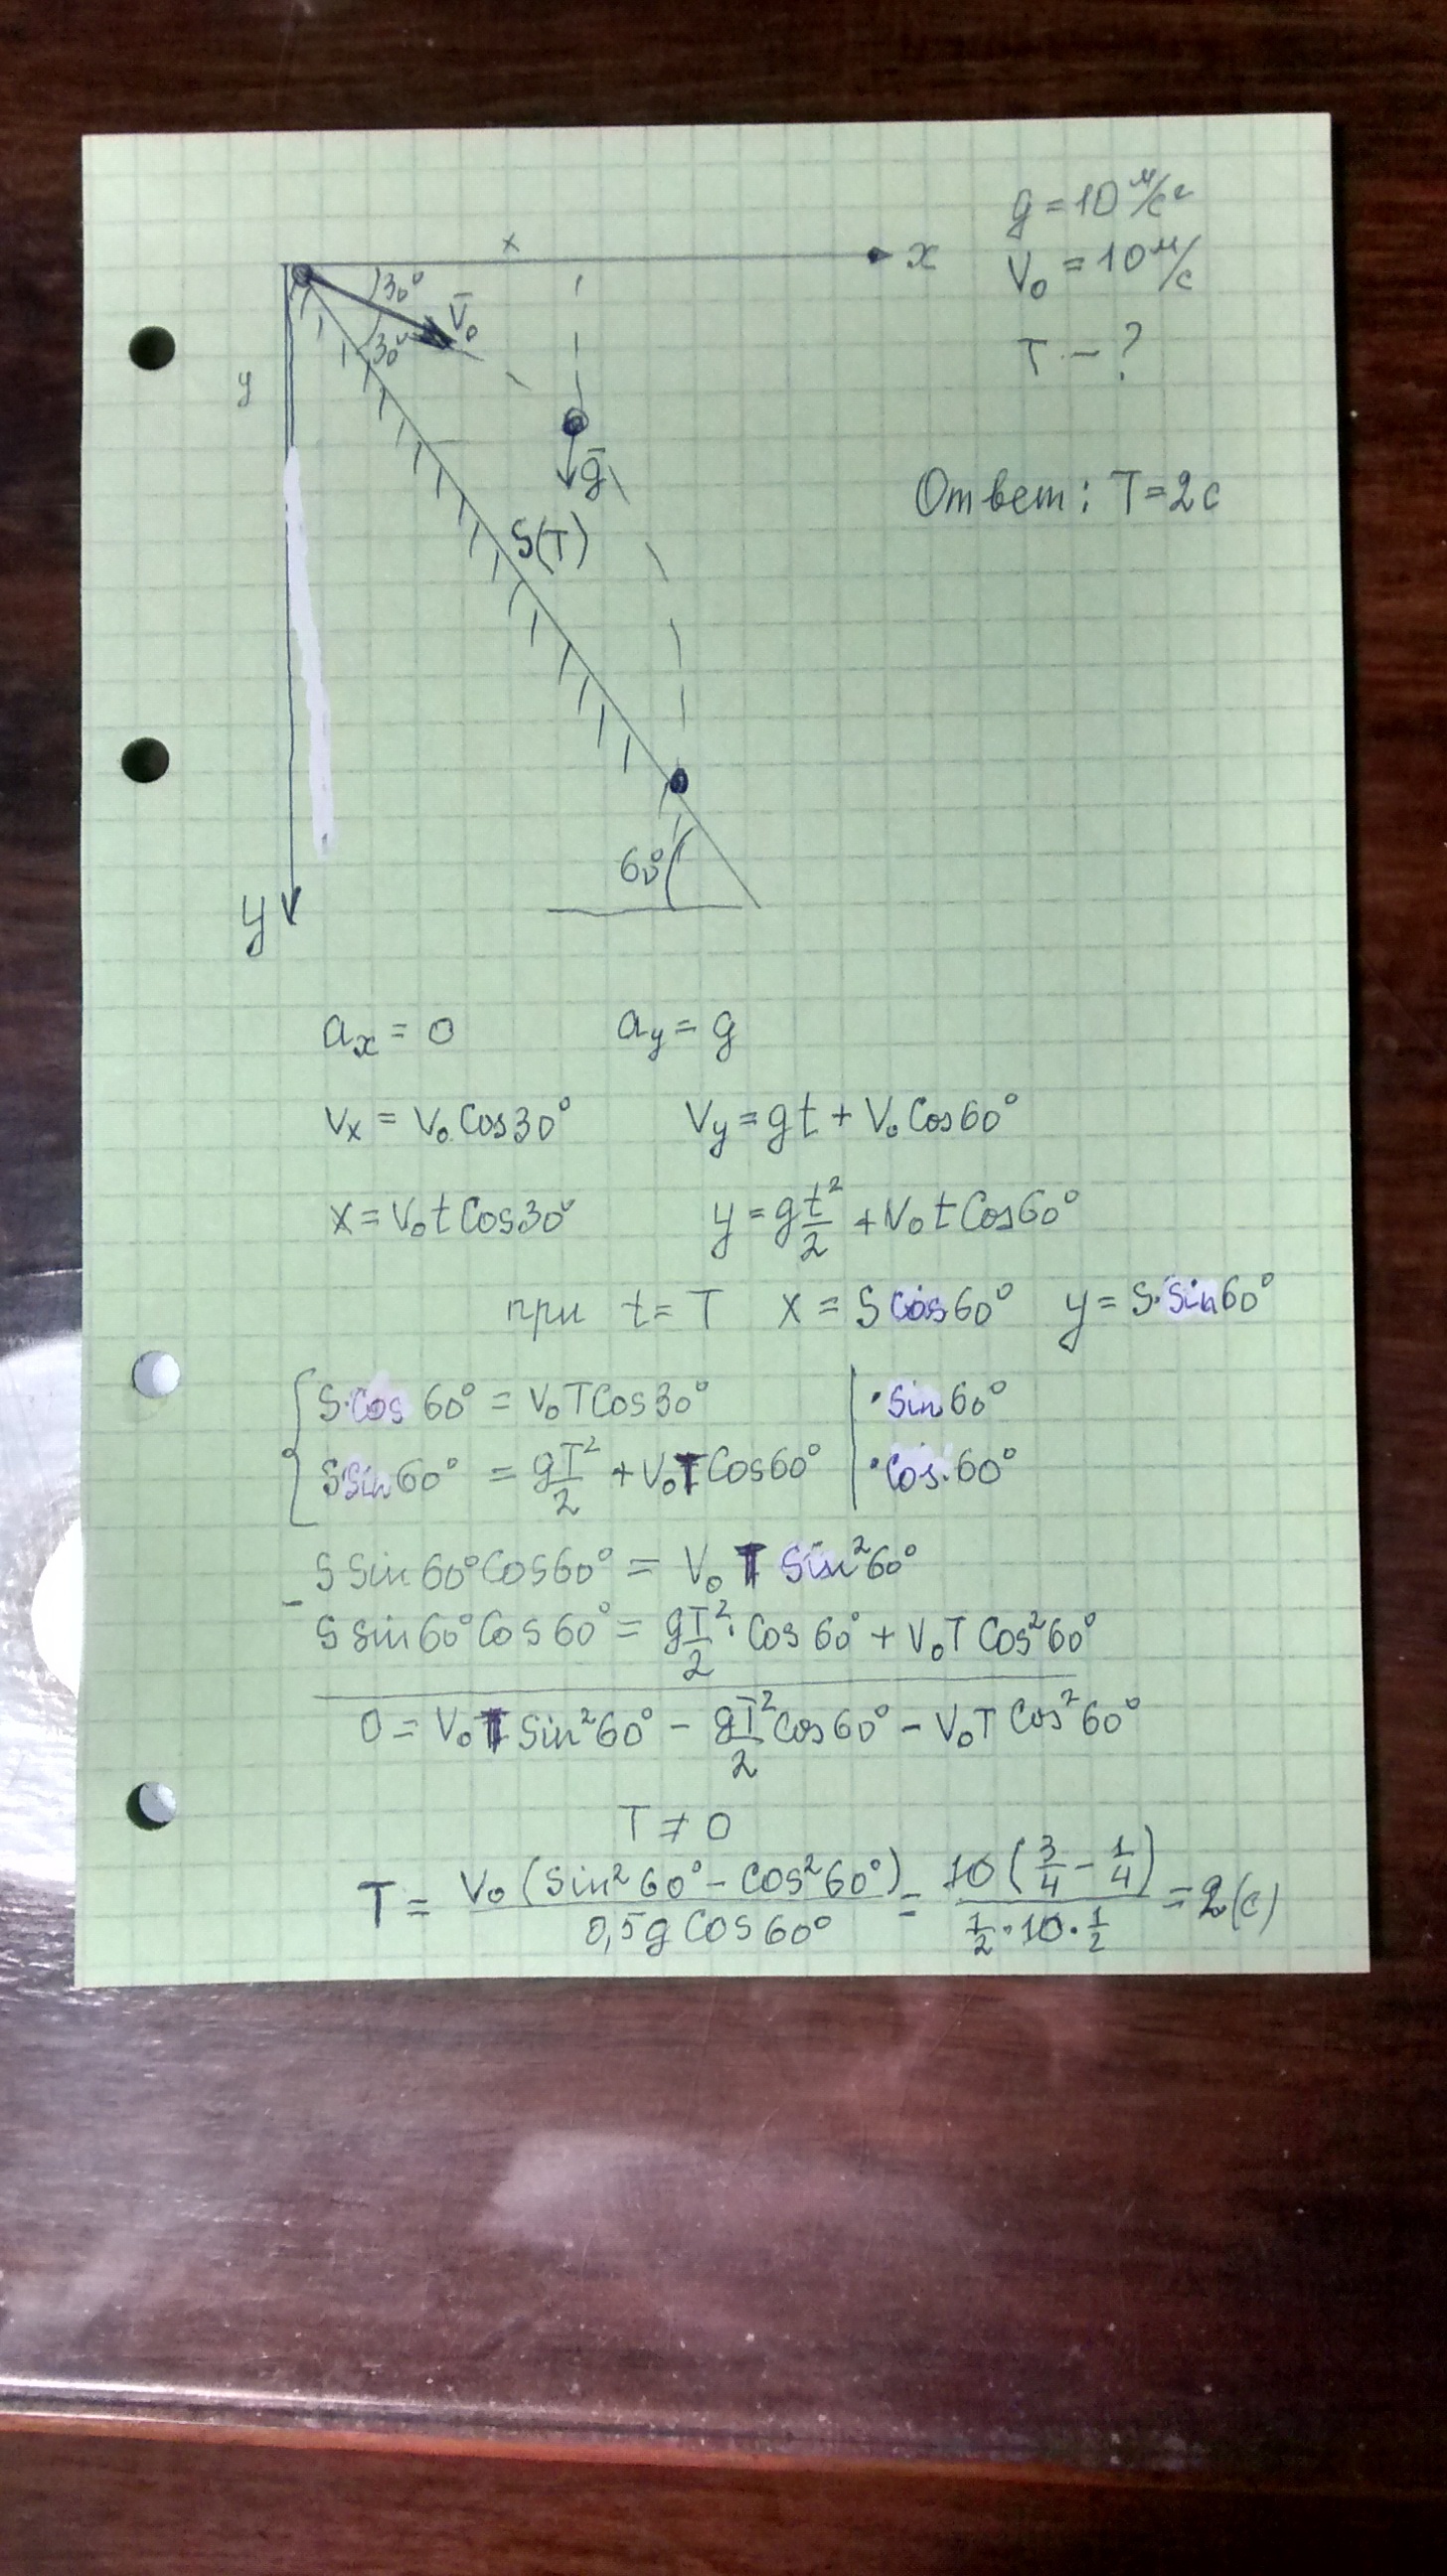 g = 10 м/с²
V₀ = 10 м/с
T - ?
Ответ: T = 2 с
x
x
30°
V̄₀
30°
y
ḡ
S(T)
60°
y
aₓ = 0 a_y = g
Vₓ = V₀ Cos30° V_y = gt + V₀ Cos60°
x = V₀ t Cos30° y = g t²/2 + V₀ t Cos60°
при t = T x = S Cos60° y = S·Sin60°
S·Cos 60° = V₀ T Cos30° | ·Sin60°
S Sin60° = g T²/2 + V₀ T Cos60° | ·Cos·60°
S Sin60° Cos60° = V₀ T Sin²60°
- S Sin60° Cos60° = g T²/2 · Cos60° + V₀ T Cos²60°
0 = V₀ T Sin²60° - g T²/2 Cos60° - V₀ T Cos²60°
T ≠ 0
T = V₀ (Sin²60° - Cos²60°) / 0,5 g Cos60° = 10 (3/4 - 1/4) / 1/2 · 10 · 1/2 = 2 (с)